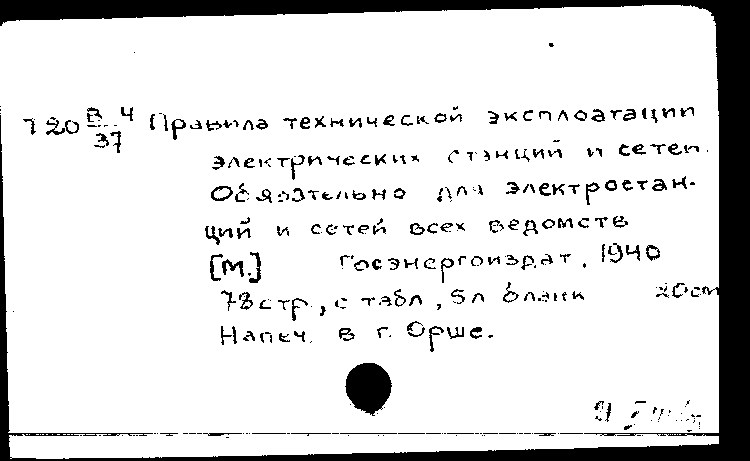 Т 20 В 4/37 Правила технической эксплоатации
электрических станций и сетей.
Обязательно для электростан-
ций и сетей всех ведомств
[М.] Госэнергоиздат, 1940
78 стр., с табл, 5л бланк 20 см
Напеч. в г. Орше.